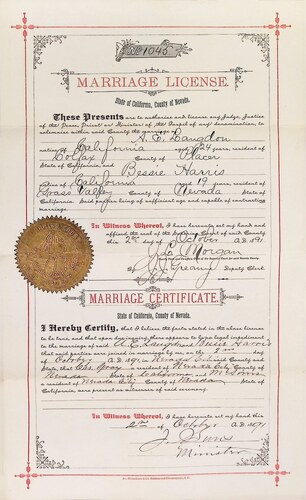 No 1046
MARRIAGE LICENSE
State of California, County of Nevada.
These Presents are to authorize and license any Judge, Justice
of the Peace, Priest or Minister of the Gospel of any denomination, to
solemnize within said County the marriage of
E. Langdon
of California aged 24 years, resident
of Colfax County of Placer
State of California and Bessie Harris
of California aged 19 years, resident
of Grass Valley County of Nevada State of
California. Said parties being of sufficient age and capable of contracting
marriage.
In Witness Whereof, I have hereunto set my hand and
affixed the seal of the Superior Court of said County
this 2nd day of October A.D. 1891
Morgan
Deputy Clerk
MARRIAGE CERTIFICATE
State of California, County of Nevada.
I Hereby Certify, that I believe the facts stated in the above license
to be true, and that upon due inquiry there appears to be no legal impediment
to the marriage of said
that said parties were joined in marriage by me, on the 2nd day
of October A.D. 1891, in said County and
State, that a resident of Nevada City County of
Nevada State of California, and
a resident of Nevada City County of Nevada State of
California, were present as witnesses of said ceremony.
In Witness Whereof, I have hereunto set my hand this
2nd day of October A.D. 1891
J. Sims
Minister